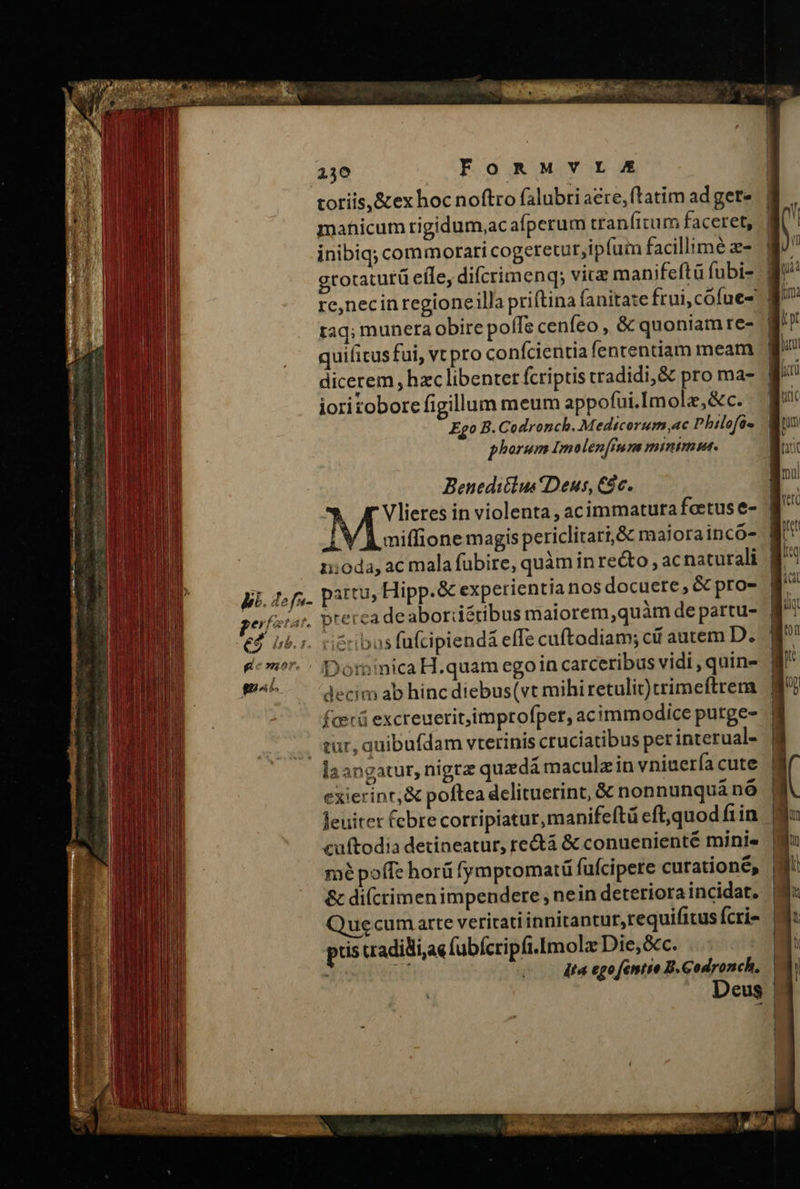 230 FORMVLÆ
toriis,&ex hoc noſtro ſalubri aëre,ſtatim ad ger-
manicum rigidum,ac aſperum tranſitum faceret,
inibiq; commorari cogeretur,ipſum facillimè æ-
grotaturū eſſe, diſcrimenq; vitæ manifeſtū ſubi-
re,nec in regione illa priſtina ſanitate frui, cōſue-
taq; munera obire poſſe cenſeo, & quoniam re-
quiſitus fui, vt pro conſcientia ſententiam meam
dicerem, hæc libenter ſcriptis tradidi,& pro ma-
iori robore ſigillum meum appoſui.Imolæ,&c.
Ego B. Codronch. Medicorum,ac Philoſo-
phorum Imolenſium minimus.
Benedictus Deus, &c.
MVlieres in violenta, ac immatura fœtus e-
miſſione magis periclitari,& maiora incō-
moda, ac mala ſubire, quàm in recto, ac naturali
lib. de ſu- partu, Hipp.& experientia nos docuere, & pro-
perfætat. pterea de abortiētibus maiorem,quàm de partu-
& lib.1. riētibus ſuſcipiendā eſſe cuſtodiam; cū autem D.
de mor. Dominica H.quam ego in carceribus vidi, quin-
mul. decim ab hinc diebus(vt mihi retulit)trimeſtrem
fœtū excreuerit,improſper, ac immodice purge-
tur, quibuſdam vterinis cruciatibus per interual-
la angatur, nigræ quædā maculæ in vniuerſa cute
exierint,& poſtea delituerint, & nonnunquā nō
leuiter febre corripiatur,manifeſtū eſt,quod ſi in
cuſtodia detineatur, rectā & conuenientē mini-
mè poſſe horū ſymptomatū ſuſcipere curationē,
& diſcrimen impendere, ne in deteriora incidat.
Quecum arte veritati innitantur,requiſitus ſcri-
ptis tradidi,ac ſubſcripſi.Imolæ Die,&c.
Ita ego ſentio B.Codronch.
Deus